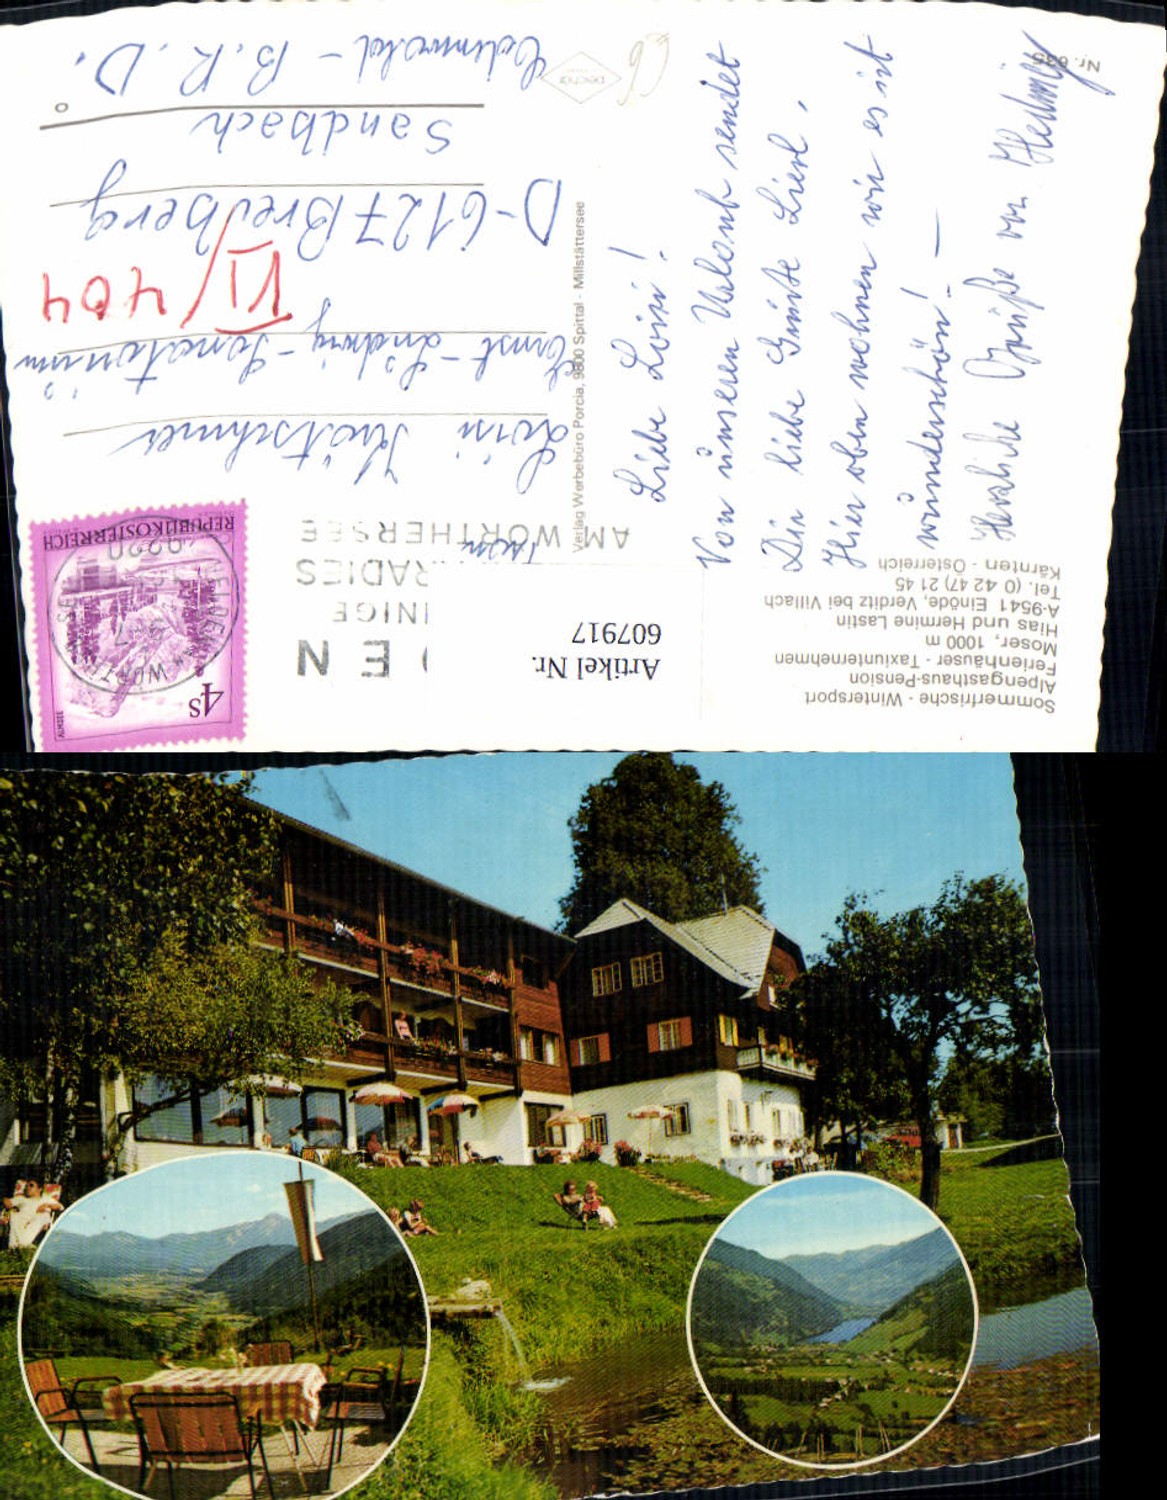 Sommerfrische - Wintersport
Alpengasthaus-Pension
Ferienhäuser - Taxiunternehmen
Moser, 1000 m
Hias und Hermine Lastin
A-9541 Einöde, Verditz bei Villach
Tel. (0 42 47) 21 45
Kärnten - Österreich
Liebe Loisi!
Von unseren Urlaub sendet
Dir liebe Grüße Liesl.
Hier oben wohnen wir es ist
wunderschön! —
Herzliche Grüße von Hedwig
Nr. 635
Verlag Werbebüro Porcia, 9800 Spittal - Millstättersee
Artikel Nr.
607917
EN
AM WÖRTHERSEE
REPUBLIK ÖSTERREICH
4S
ALMSEE
9220
Loisi
Ernst-Ludwig-Sanatorium
VI/404
D-6127 Breuberg
Sandbach
Odenwald - B.R.D.